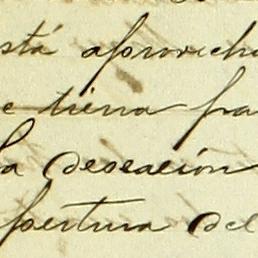 stá aprovecha
e tierra fra
la deseación
pertura del